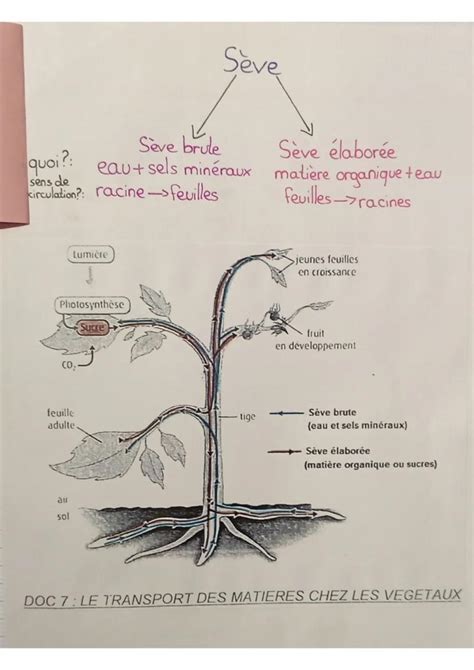 Sève
Sève brute
Sève élaborée
quoi?:
eau + sels minéraux
matière organique + eau
sens de
circulation?:
racine → feuilles
feuilles → racines
Lumière
Photosynthèse
Sucre
CO₂
jeunes feuilles
en croissance
fruit
en développement
feuille
adulte
tige
Sève brute
(eau et sels minéraux)
Sève élaborée
(matière organique ou sucres)
au
sol
DOC 7 : LE TRANSPORT DES MATIERES CHEZ LES VEGETAUX